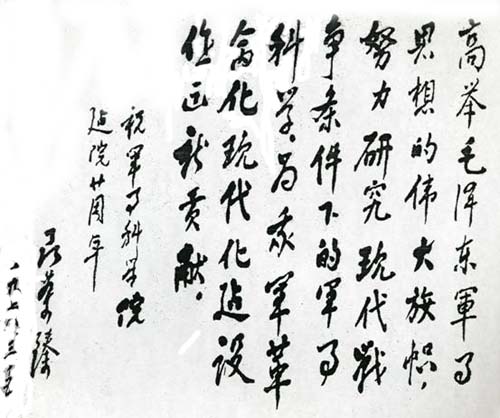 高举毛泽东軍事
思想的伟大旗帜，
努力研究现代战
争条件下的軍事
科学，为我軍革
命化现代化建设
作出新贡献。
祝軍事科学院
建院廿周年
聂荣臻
一九七八.三.十五